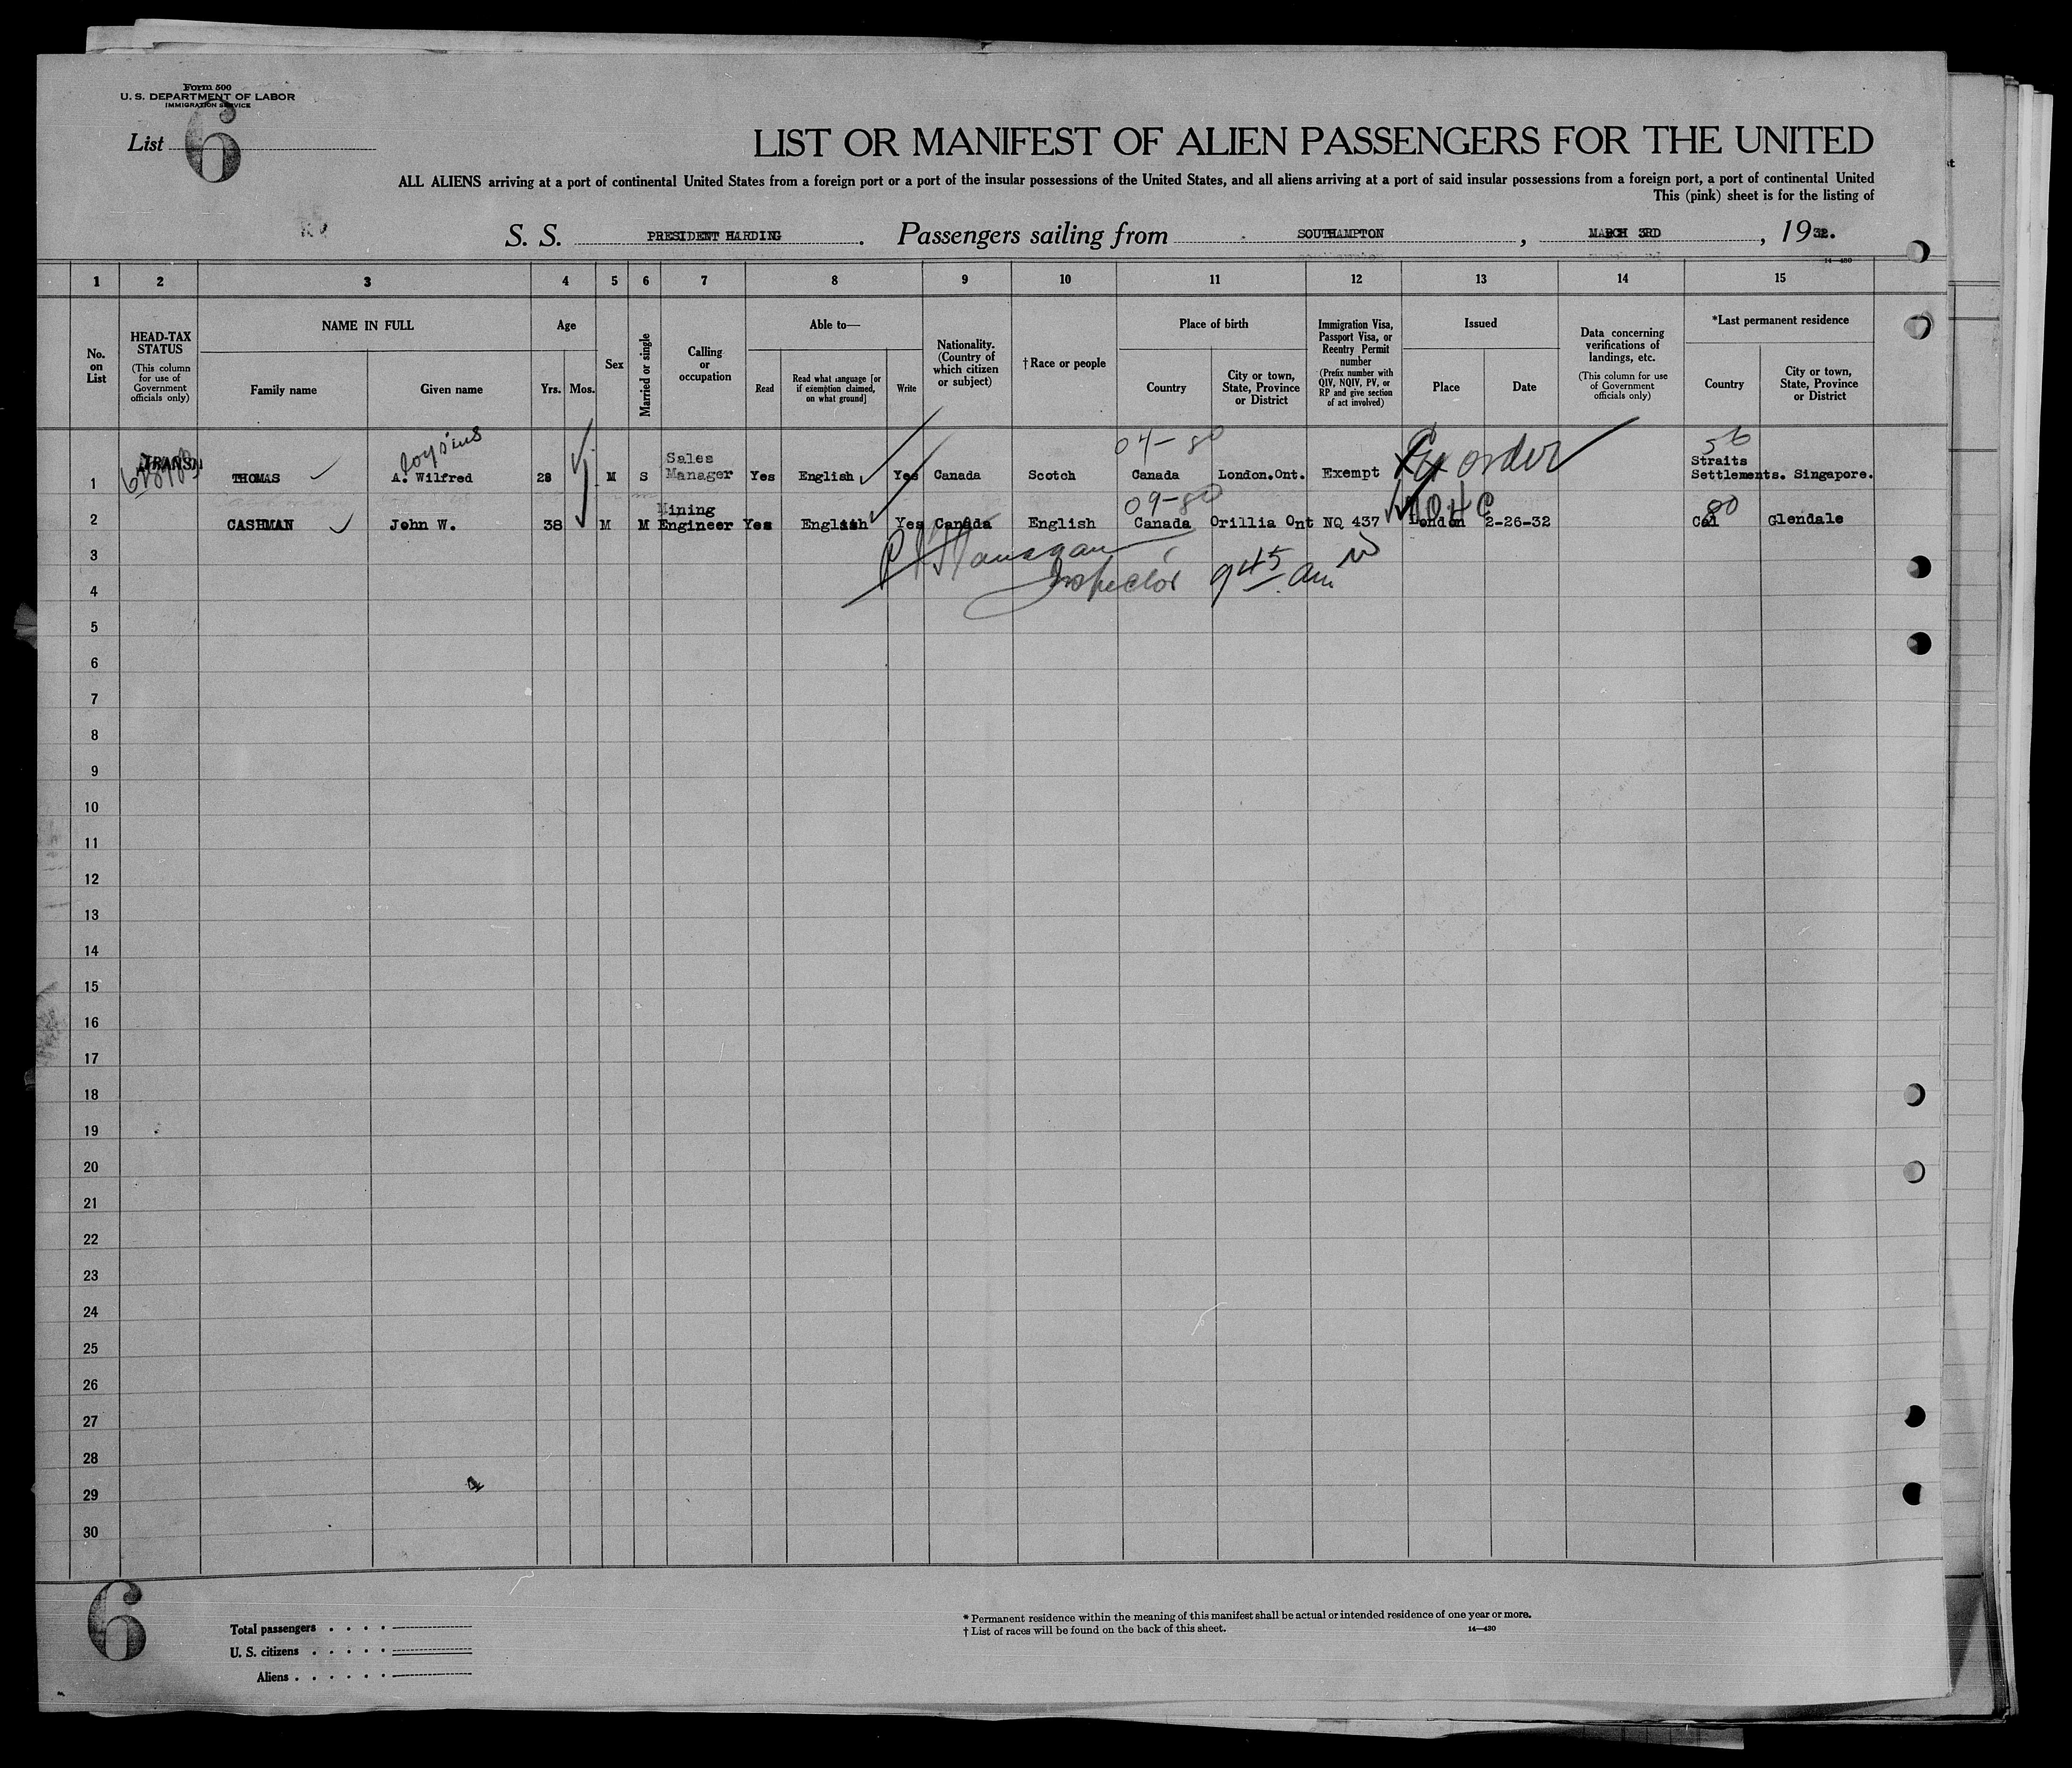 Form 500
U. S. DEPARTMENT OF LABOR
IMMIGRATION SERVICE
List 6
LIST OR MANIFEST OF ALIEN PASSENGERS FOR THE UNITED
ALL ALIENS arriving at a port of continental United States from a foreign port or a port of the insular possessions of the United States, and all aliens arriving at a port of said insular possessions from a foreign port, a port of continental United
This (pink) sheet is for the listing of
S. S. PRESIDENT HARDING. Passengers sailing from SOUTHAMPTON, MARCH 3RD, 1932.
14—430
1 2 3 4 5 6 7 8 9 10 11 12 13 14 15
No. on List
HEAD-TAX STATUS
(This column for use of Government officials only)
NAME IN FULL
Family name
Given name
Age
Yrs. Mos.
Sex
Married or single
Calling or occupation
Able to—
Read
Read what language [or if exemption claimed, on what ground]
Write
Nationality. (Country of which citizen or subject)
†Race or people
Place of birth
Country
City or town, State, Province or District
Immigration Visa, Passport Visa, or Reentry Permit number
(Prefix number with QIV, NQIV, PV, or RP and give section of act involved)
Issued
Place
Date
Data concerning verifications of landings, etc.
(This column for use of Government officials only)
*Last permanent residence
Country
City or town, State, Province or District
loysius 04-80 order 56
1 TRANSIT THOMAS A. Wilfred 28 M S Sales Manager Yes English Yes Canada Scotch Canada London.Ont. Exempt Straits Settlements. Singapore.
09-80 80
2 CASHMAN John W. 38 M M Mining Engineer Yes English Yes Canada English Canada Orillia Ont NQ 437 London 2-26-32 Cal Glendale
3
Inspector 9 45 am
4
5
6
7
8
9
10
11
12
13
14
15
16
17
18
19
20
21
22
23
24
25
26
27
28
29
30
6
Total passengers
U. S. citizens
Aliens
* Permanent residence within the meaning of this manifest shall be actual or intended residence of one year or more.
† List of races will be found on the back of this sheet.
14—430